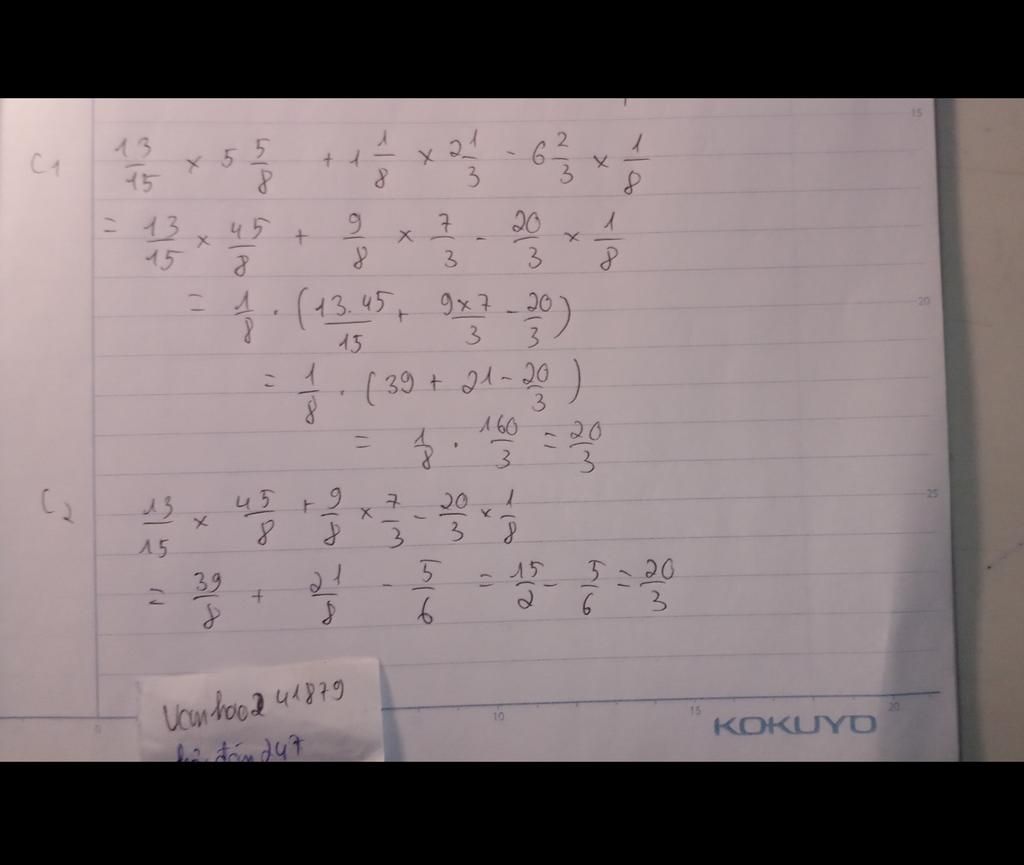 15
C1 13/15 × 5 5/8 + 1 1/8 × 2 1/3 - 6 2/3 × 1/8
= 13/15 × 45/8 + 9/8 × 7/3 - 20/3 × 1/8
= 1/8 . (13.45/15 + 9×7/3 - 20/3)
20
= 1/8 . (39 + 21 - 20/3)
= 1/8 . 160/3 = 20/3
C2 13/15 × 45/8 + 9/8 × 7/3 - 20/3 × 1/8
25
= 39/8 + 21/8 - 5/6 = 15/2 - 5/6 = 20/3
41879
247
0 10 15 20
KOKUYO